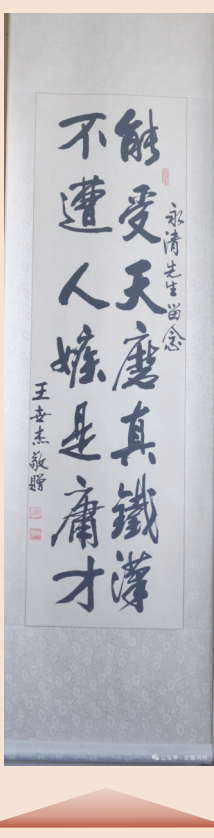 永清先生留念
能受天磨真鐵漢
不遭人嫉是庸才
王世杰敬贈
公众号